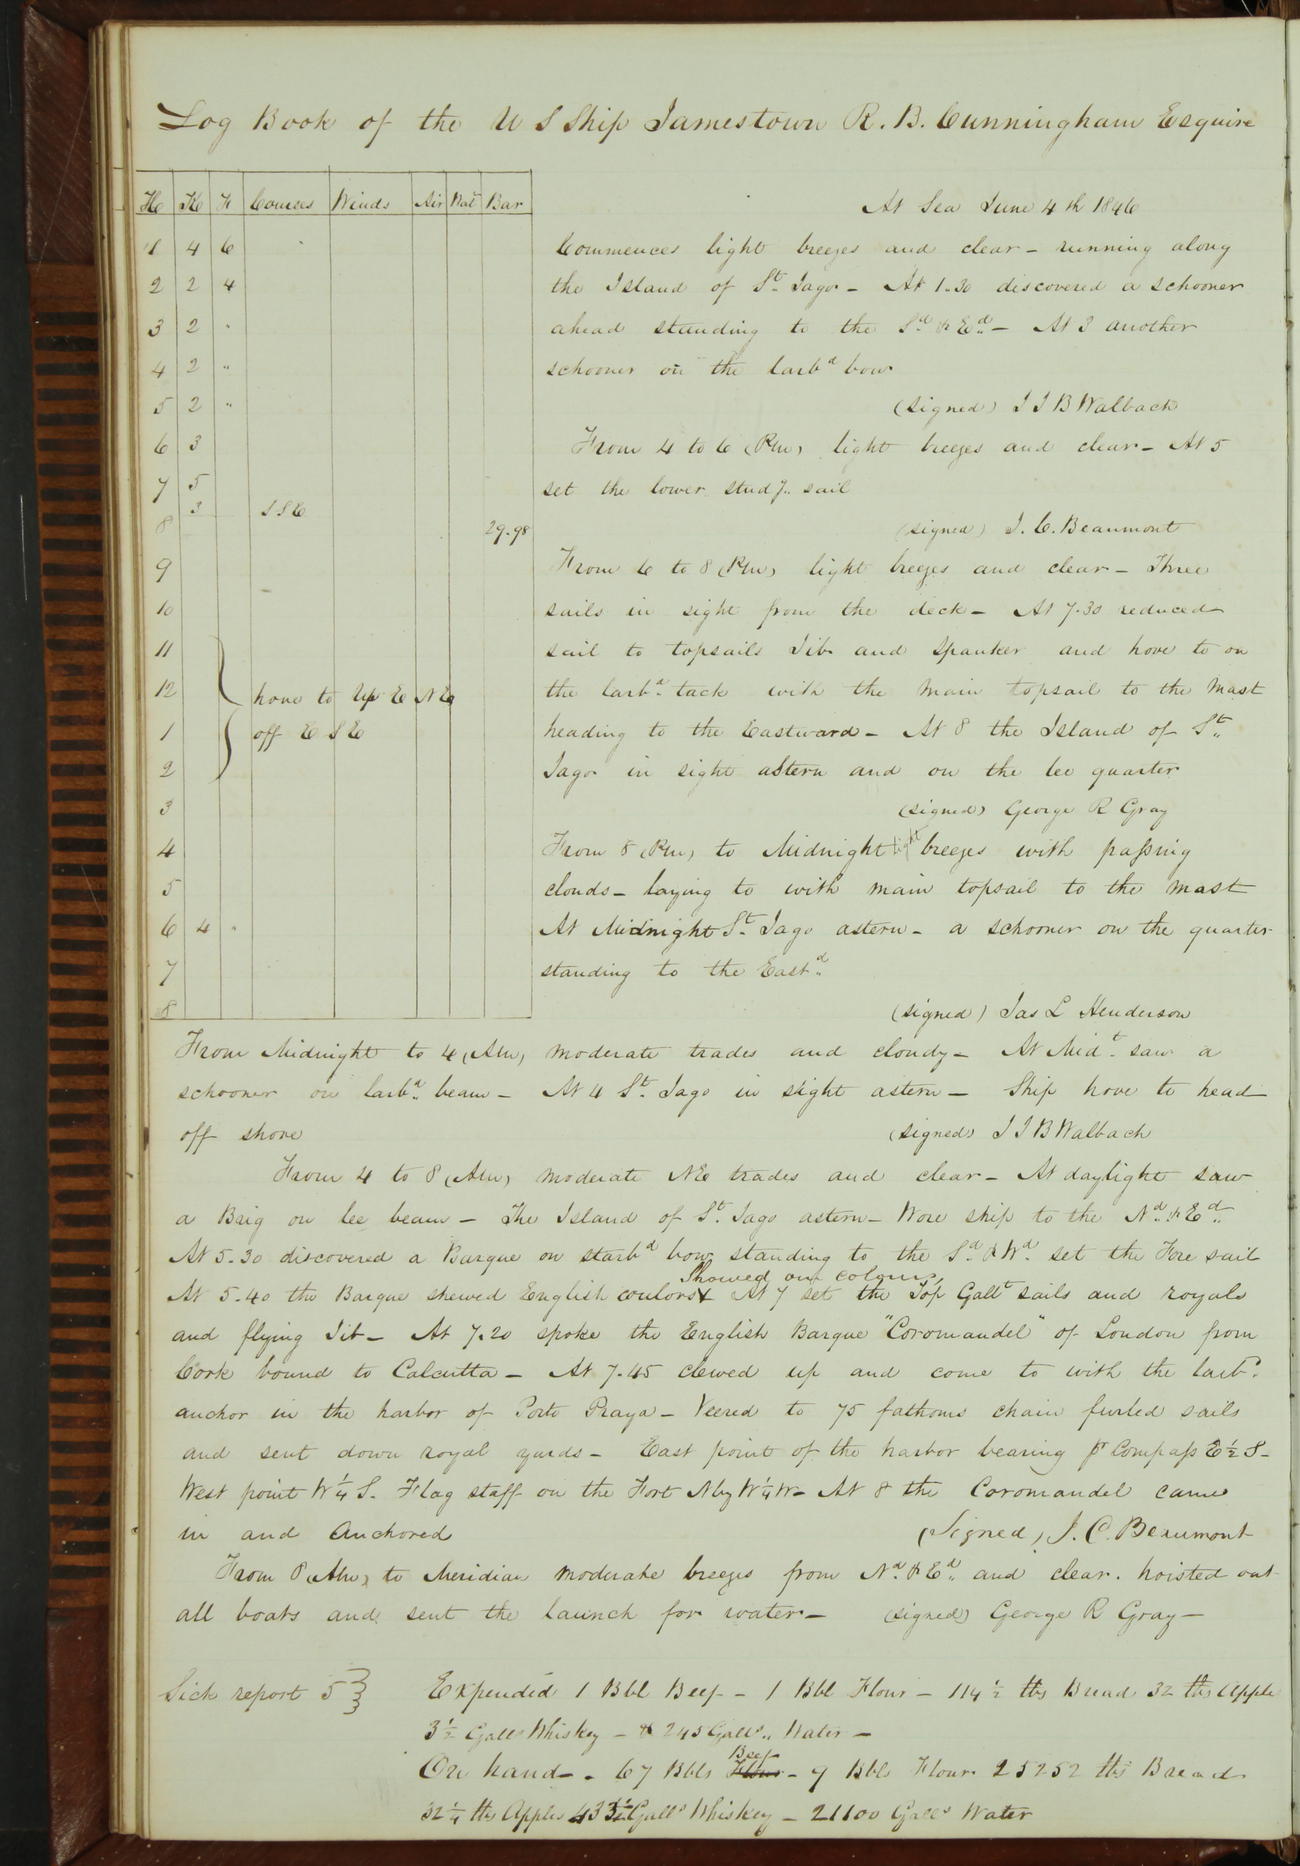 Log Book of the U S Ship Jamestown R. B. Cunningham Esquire
H K F Courses Winds Air Wat Bar
At Sea June 4th 1846
1 4 6
2 2 4
3 2 "
4 2 "
5 2 "
6 3
7 5
3 SSE
8 29.98
9
10
11
12 hove to Up E N E
1 off E S E
2
3
4
5
6 4 "
7
8
Commences light breezes and clear - running along
the Island of St. Jago - At 1.30 discovered a schooner
ahead standing to the Sd & Ed - At 3 another
schooner on the larbd bow
(signed) J J B Walbach
From 4 to 6 (Pm) light breezes and clear - At 5
set the lower studg. sail
(signed) J. C. Beaumont
From 6 to 8 (Pm) light breezes and clear - Three
sails in sight from the deck - At 7.30 reduced
sail to topsails Jib and Spanker and hove to on
the larbd tack with the main topsail to the mast
heading to the Eastward - At 8 the Island of St.
Jago in sight astern and on the lee quarter
(signed) George R Gray
From 8 (Pm) to Midnight light breezes with passing
clouds - laying to with main topsail to the mast
At Midnight St. Jago astern - a schooner on the quarter
standing to the Eastd
(signed) Jas L Henderson
From Midnight to 4 (Am) moderate trades and cloudy - At Midt saw a
schooner on larbd beam - At 4 St. Jago in sight astern - Ship hove to head
off shore (signed) J J B Walbach
From 4 to 8 (Am) moderate NE trades and clear - At daylight saw
a Brig on lee beam - The Island of St. Jago astern - Wore ship to the Nd & Ed
At 5.30 discovered a Barque on starbd bow standing to the Sd & Wd set the Fore sail
Showed our colours
At 5.40 the Barque shewed English coulors x At 7 set the Top Gallt sails and royals
and flying Jib - At 7.20 spoke the English Barque "Coromandel" of London from
Cork bound to Calcutta - At 7.45 clewed up and come to with the larbd
anchor in the harbor of Porto Praya - Veered to 75 fathoms chain furled sails
and sent down royal yards - East point of the harbor bearing pr Compass E ½ S -
West point W ¼ S. Flag staff on the Fort N by W ¼ W - At 8 the Coromandel came
in and Anchored (Signed) J. C. Beaumont
From 8 (Am) to Meridian moderate breezes from Nd & Ed and clear. hoisted out
all boats and sent the launch for water - (signed) George R Gray -
Sick report 5 Expended 1 Bbl Beef - 1 Bbl Flour - 114 ½ lbs Bread 32 lbs Apple
3 ½ Galls Whiskey - & 245 Galls Water -
Beef
On hand - 67 Bbls Flour - 7 Bbls Flour 25252 lbs Bread
32 ¼ lbs Apples 433 ½ Galls Whiskey - 21100 Galls Water